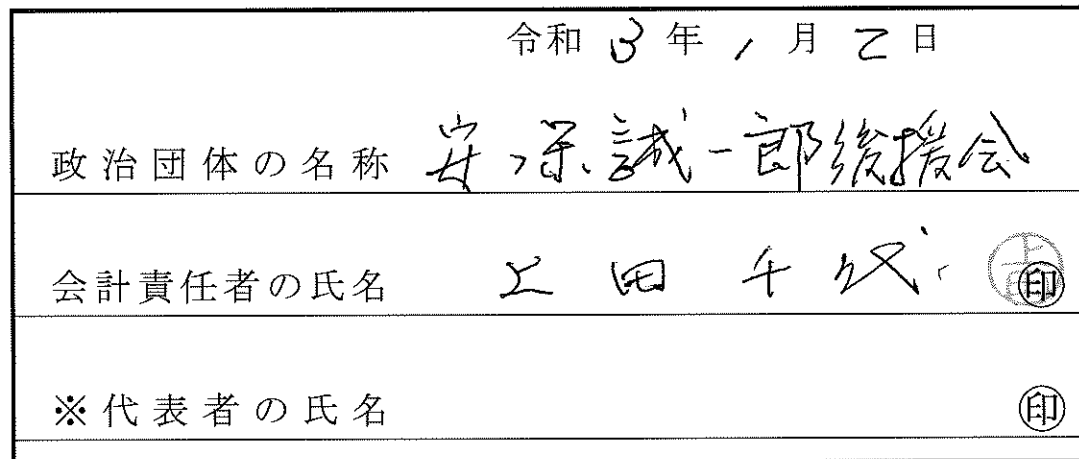 令和3年1月2日
政治団体の名称 安保誠一郎後援会
会計責任者の氏名 上田千代 印
※代表者の氏名 印